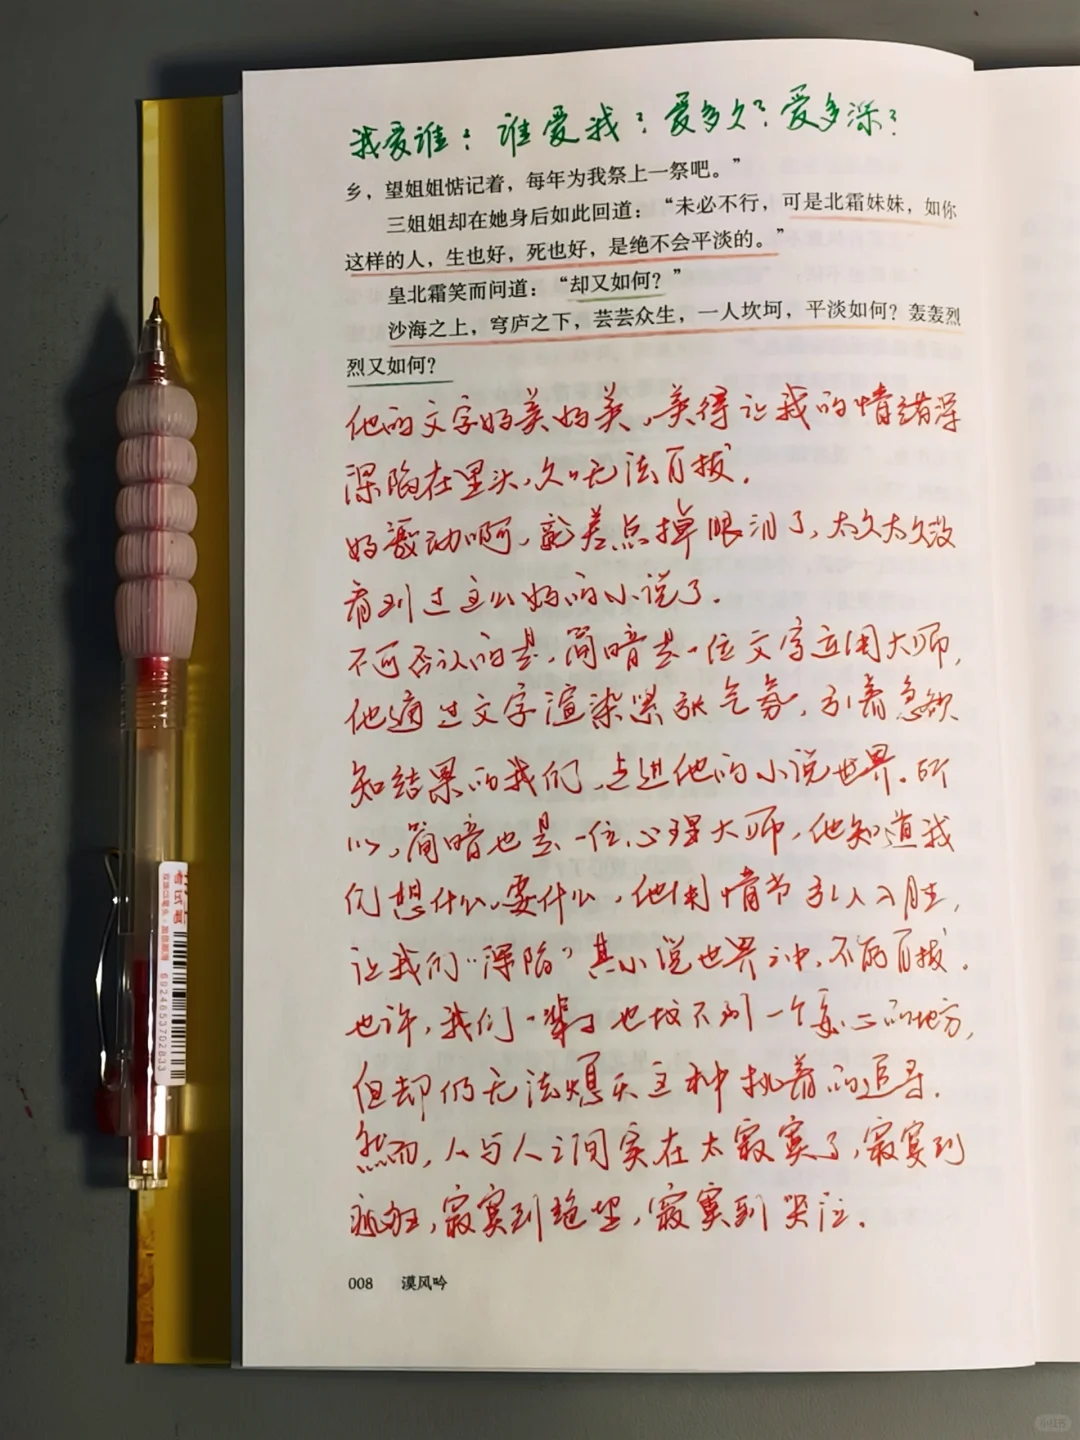 我爱谁？谁爱我？爱多久？爱多深？
乡，望姐姐惦记着，每年为我祭上一祭吧。”
三姐姐却在她身后如此回道：“未必不行，可是北霜妹妹，如你
这样的人，生也好，死也好，是绝不会平淡的。”
皇北霜笑而问道：“却又如何？”
沙海之上，穹庐之下，芸芸众生，一人坎坷，平淡如何？轰轰烈
烈又如何？
他的文字好美好美，美得让我的情绪深
深陷在里头，久久无法自拔。
好激动啊，就差点掉眼泪了，太久太久没
看到过这么好的小说了。
不可否认的是，简暗是一位文字应用大师，
他通过文字渲染紧张气氛，引着急欲
知结果的我们，走进他的小说世界。所
以，简暗也是一位心理大师，他知道我
们想什么，要什么，他用情节引人入胜，
让我们“深陷”其小说世界之中，不能自拔。
也许，我们一辈子也找不到一个安心的地方，
但却仍无法熄灭这种执着的追寻。
然而，人与人之间实在太寂寞了，寂寞到
疯狂，寂寞到绝望，寂寞到哭泣。
008 漠风吟
考试笔
6924653702833
小红书